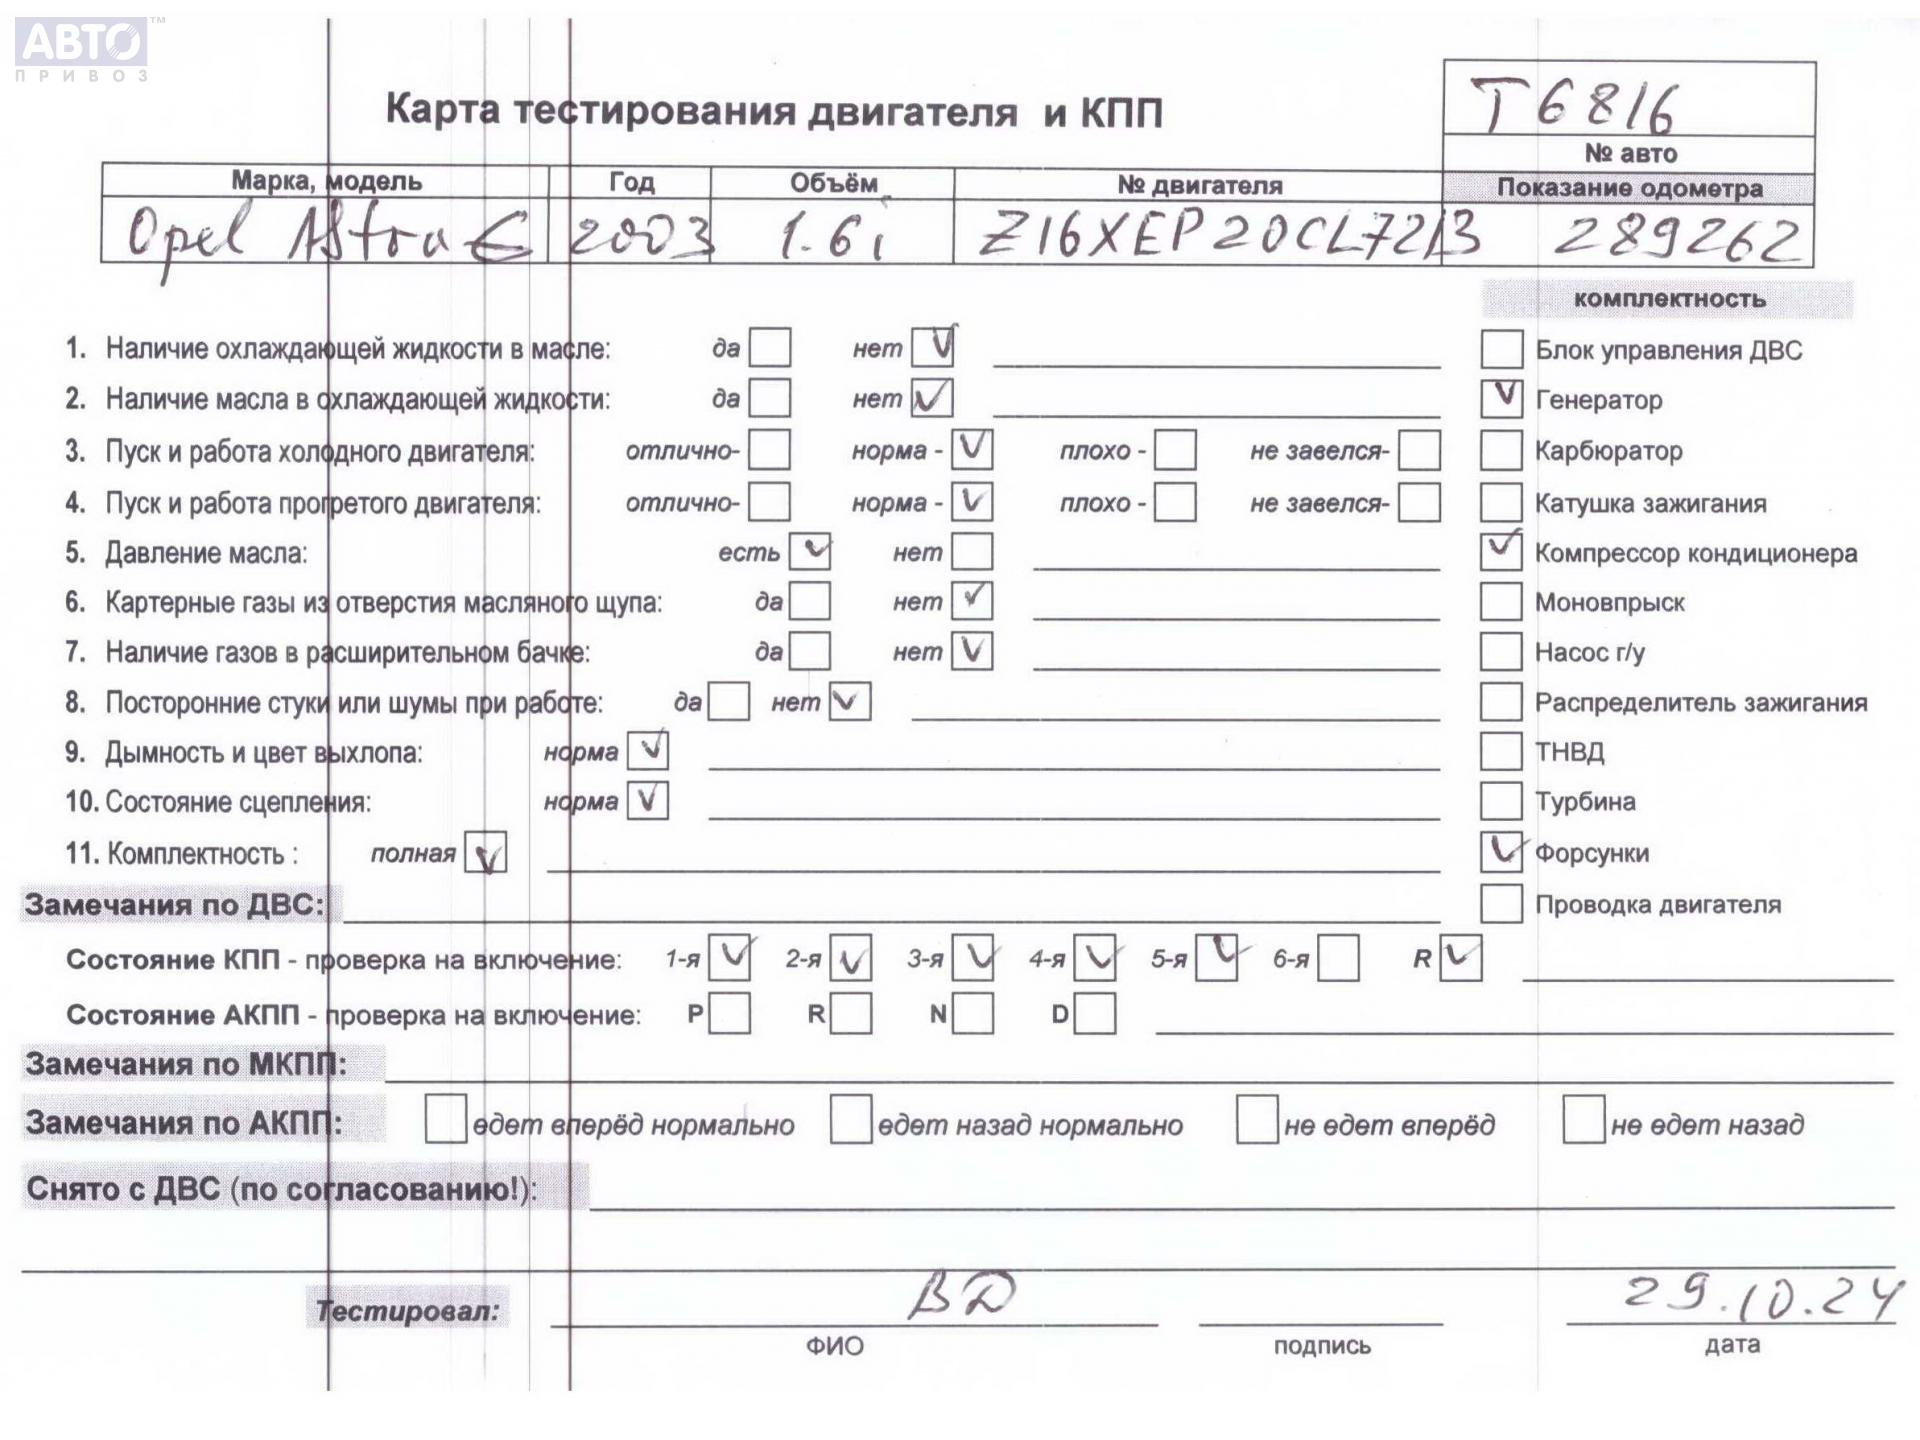 АВТО™
ПРИВОЗ
Карта тестирования двигателя и КПП
Т6816
№ авто
Марка, модель Год Объём № двигателя Показание одометра
Opel Astra G 2003 1.6i Z16XEP20CL7213 289262
комплектность
1. Наличие охлаждающей жидкости в масле: да нет V Блок управления ДВС
2. Наличие масла в охлаждающей жидкости: да нет V V Генератор
3. Пуск и работа холодного двигателя: отлично- норма - V плохо - не завелся- Карбюратор
4. Пуск и работа прогретого двигателя: отлично- норма - V плохо - не завелся- Катушка зажигания
5. Давление масла: есть V нет V Компрессор кондиционера
6. Картерные газы из отверстия масляного щупа: да нет V Моновпрыск
7. Наличие газов в расширительном бачке: да нет V Насос г/у
8. Посторонние стуки или шумы при работе: да нет V Распределитель зажигания
9. Дымность и цвет выхлопа: норма V ТНВД
10. Состояние сцепления: норма V Турбина
11. Комплектность : полная V V Форсунки
Замечания по ДВС: Проводка двигателя
Состояние КПП - проверка на включение: 1-я V 2-я V 3-я V 4-я V 5-я V 6-я R V
Состояние АКПП - проверка на включение: P R N D
Замечания по МКПП:
Замечания по АКПП: едет вперёд нормально едет назад нормально не едет вперёд не едет назад
Снято с ДВС (по согласованию!):
Тестировал: ВД 29.10.24
ФИО подпись дата